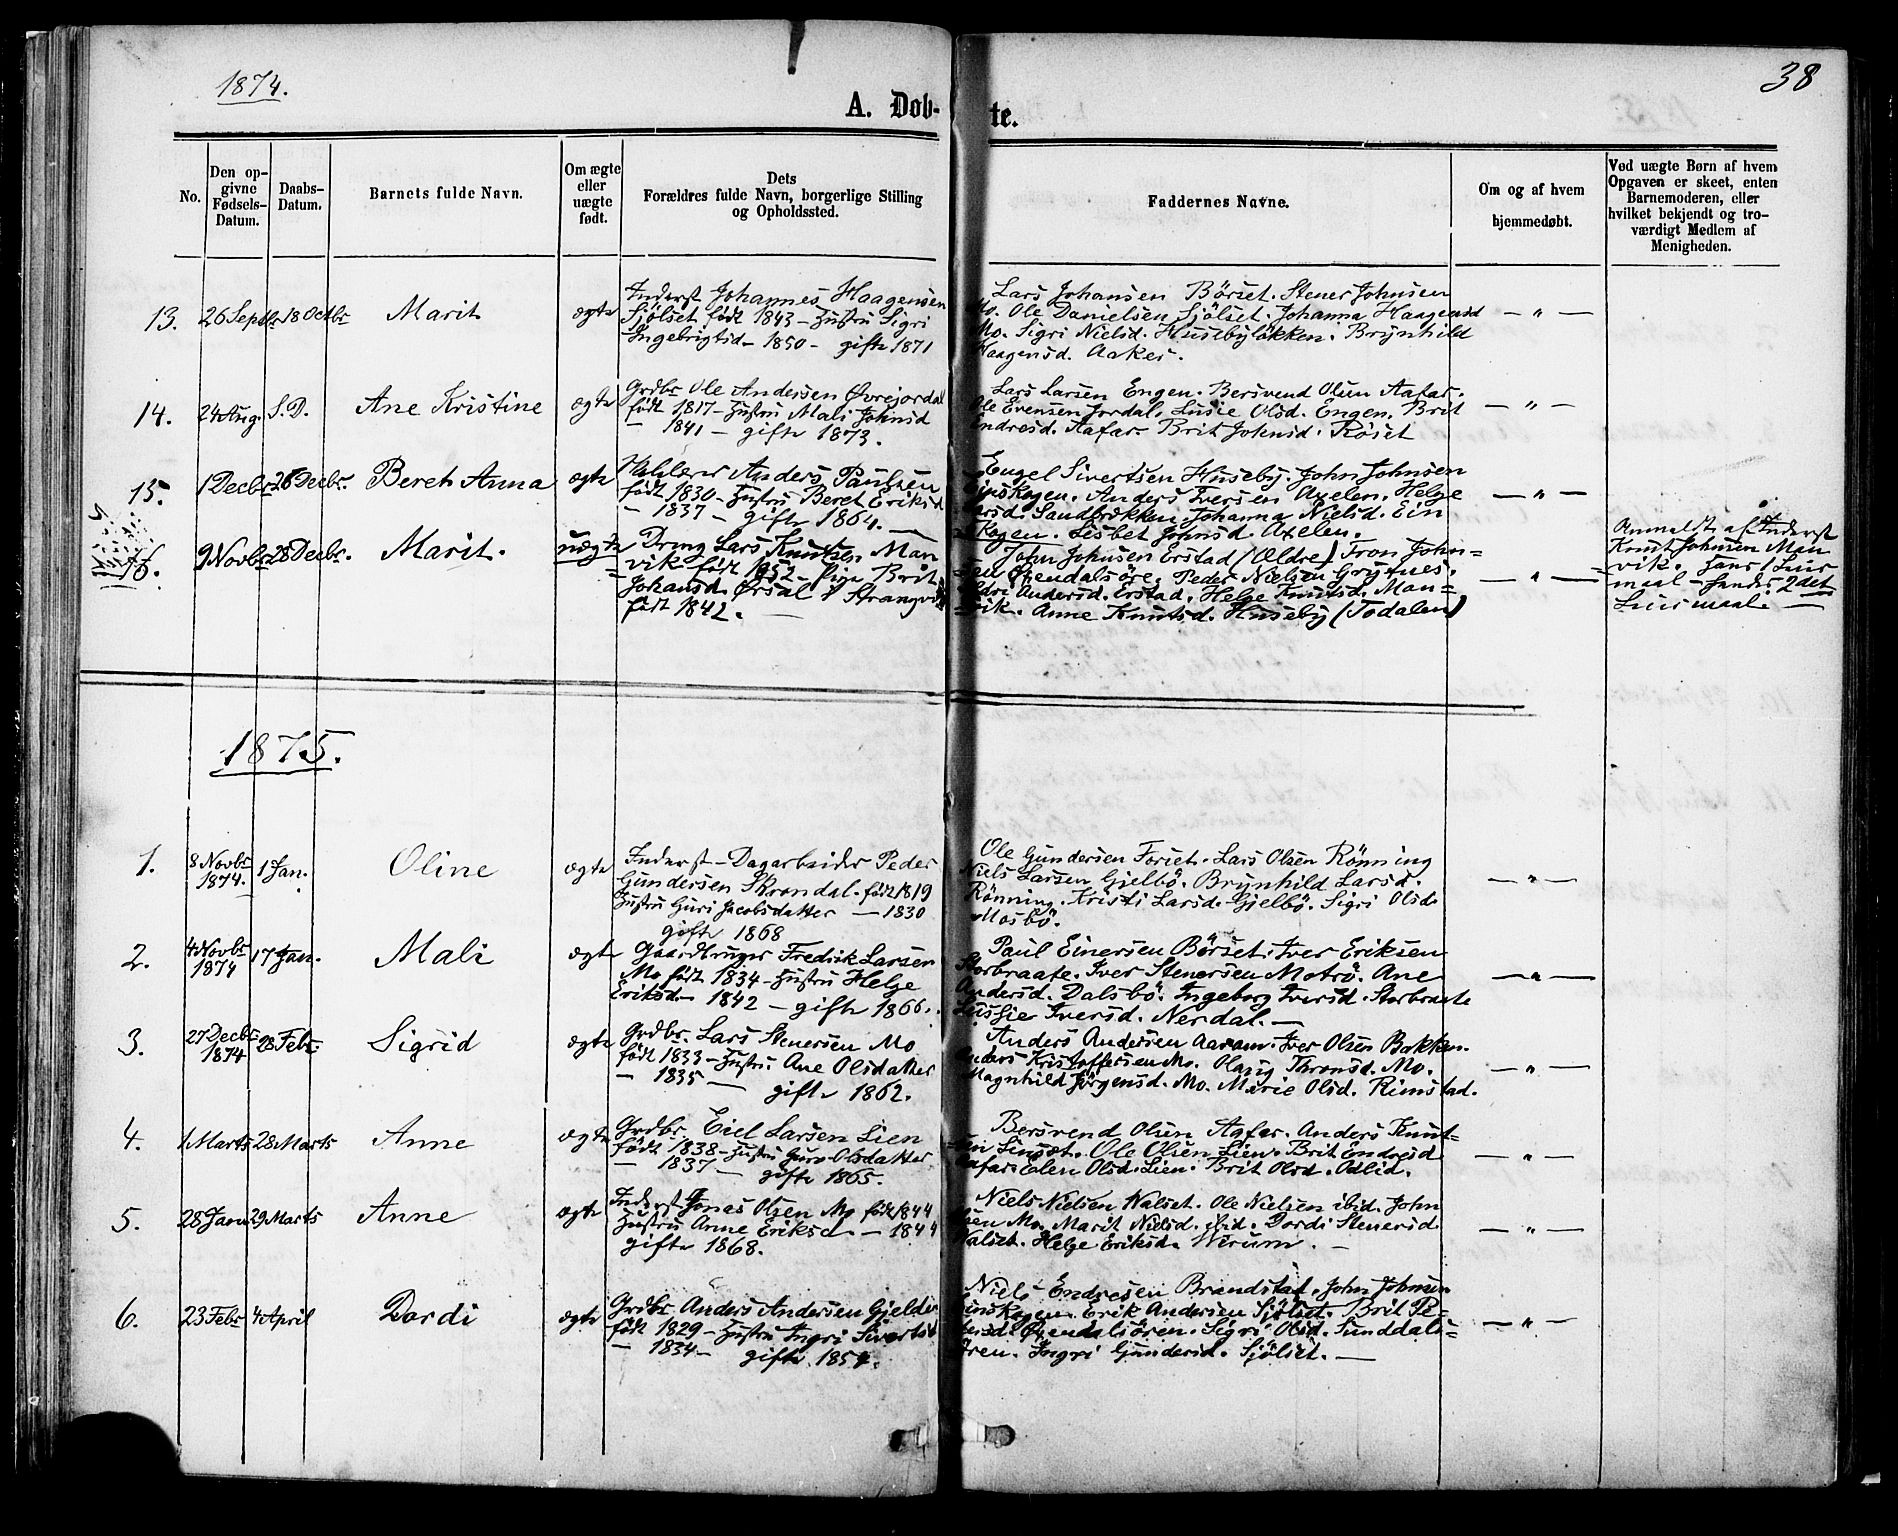 1874.
38
A. Døb-
te.
No.
Den op-
givne
Fødsels-
Datum.
Daabs-
Datum.
Barnets fulde Navn.
Om ægte
eller
uægte
født.
Dets
Forældres fulde Navn, borgerlige Stilling
og Opholdssted.
Faddernes Navne.
Om og af hvem
hjemmedøbt.
Ved uægte Børn af hvem
Opgaven er skeet, enten
Barnemoderen, eller
hvilket bekjendt og tro-
værdigt Medlem af
Menigheden.
13. 26 Septbr 18 Octbr Marit ægte
Inderst Johannes Haagensen
Sjölset født 1843 – Hustru Sigri
Ingebrigtsd – 1850 – gift 1871
Lars Johansen Börset. Stener Johnsen
Mo. Ole Danielsen Sjölset. Johanna Haagensd
Mo. Sigri Nielsd. Husebyløkken. Brynhild
Haagensd. Aaker.
— " —
14. 24 Aug. S.D. Ane Kristine ægte
Grdbr Ole Andersen Øvrejordal
født 1817 – Hustru Mali Johnsd
– 1841 – gift 1873.
Lars Larsen Engen. Bersvend Olsen Aafar.
Ole Evensen Jordal. Lusie Olsd. Engen. Brit
Endresd. Aafar. Brit Johnsd. Röset
— " —
15. 1 Decbr 26 Decbr. Beret Anna ægte
Anders Paulsen
født 1830 – Hustru Beret Eriksd
– 1837 – gift 1864. —
Engel Sivertsen Huseby. John Johnsen
Einskagen. Anders Iversen Axelen. Helge
Larsd. Sandbrækken Johanna Nielsd. Ein
skagen. Lisbet Johnsd. Axelen.
— " —
16. 9 Novbr 28 Decbr. Marit. uægte
Dreng Lars Knutsen Man
vik født 1852 – Pige Brit
Johansd. Ørsal i Strangvik
født 1842. —
John Johnsen Erstad (Ældre) Tron John=
sen Øxendalsöre. Peder Nielsen Grytnes.
Andersd. Erstad. Helge Knutsd. Man=
vik. Anne Knutsd. Huseby (Todalen)
— " —
Anmeldt af Inderst
Knut Johnsen Man
vik. Hans 1 Leier
maal – hendes 2det
Leiermaal. —
1875.
1. 8 Novbr
1874. 1 Jan. Oline ægte
Inderst – Dagarbeider Peder
Gundersen Skrøndal. født 1819
Hustru Guri Jacobsdatter — 1830
gift 1868
Ole Gundersen Forset. Lars Olsen Rönning
Niels Larsen Gjelbö. Brynhild Larsd.
Rönning. Kristi Larsd. Gjelbö. Sigri Olsd.
Mosbö.
— " —
2. 4 Novbr
1874 17 Jan. Mali ægte
Gaardbruger Fredrik Larsen
Mo født 1834 – Hustru Helge
Eriksd – 1842 – gift 1866.
Paul Einersen Börset. Iver Eriksen
Storbraate. Iver Stenersen Motrö. Ane
Andersd. Dalsbö. Ingeborg Iversd. Storbraate
Lussie Iversd. Nerdal. —
— " —
3. 27 Decbr
1874 28 Febr. Sigrid ægte
Grdbr. Lars Stenersen Mo
født 1833 – Hustru Ane Olsdatter
– 1835 — gift 1862.
Anders Andersen Aaram. Iver Olsen Bakken.
Anders Kristoffersen Mo. Olaug Thronsd. Mo.
Magnhild Jörgensd. Mo. Marie Olsd. Rimstad.
— " —
4. 1 Marts 28 Marts Anne ægte
Grdbr. Eiel Larsen Lien
født 1838 – Hustru Guro Olsdatter
– 1837 — gift 1865.
Bersvend Olsen Aafar. Anders Knut=
sen Linset. Ole Olsen Lien. Brit Endresd
Aafar. Elen Olsd. Lien. Brit Olsd. Odlid.
— " —
5. 28 Janr 29 Marts Anne ægte
Inderst Jonas Olsen Mo født 1844
Hustru Anne Eriksd – 1844
gift 1868.
Niels Nielsen Walset. Ole Nielsen ibid. John
Olsen Mo. Marit Nielsd. ibid. Dordi Stenersd
Walset. Helge Eriksd. Wirum. —
— " —
6. 23 Febr 4 April Dordi ægte
Grdbr Anders Andersen Gjelde
født 1829 – Hustru Ingri Sivertsd
– 1834 – gift 1854.
Niels Endresen Brandstad. John Johnsen
Einskagen. Erik Andersen Sjölset. Brit Pe=
dersd. Øxendalsören. Sigri Olsd. Sunddals=
ören. Ingri Gundersd. Sjölset. —
— " —